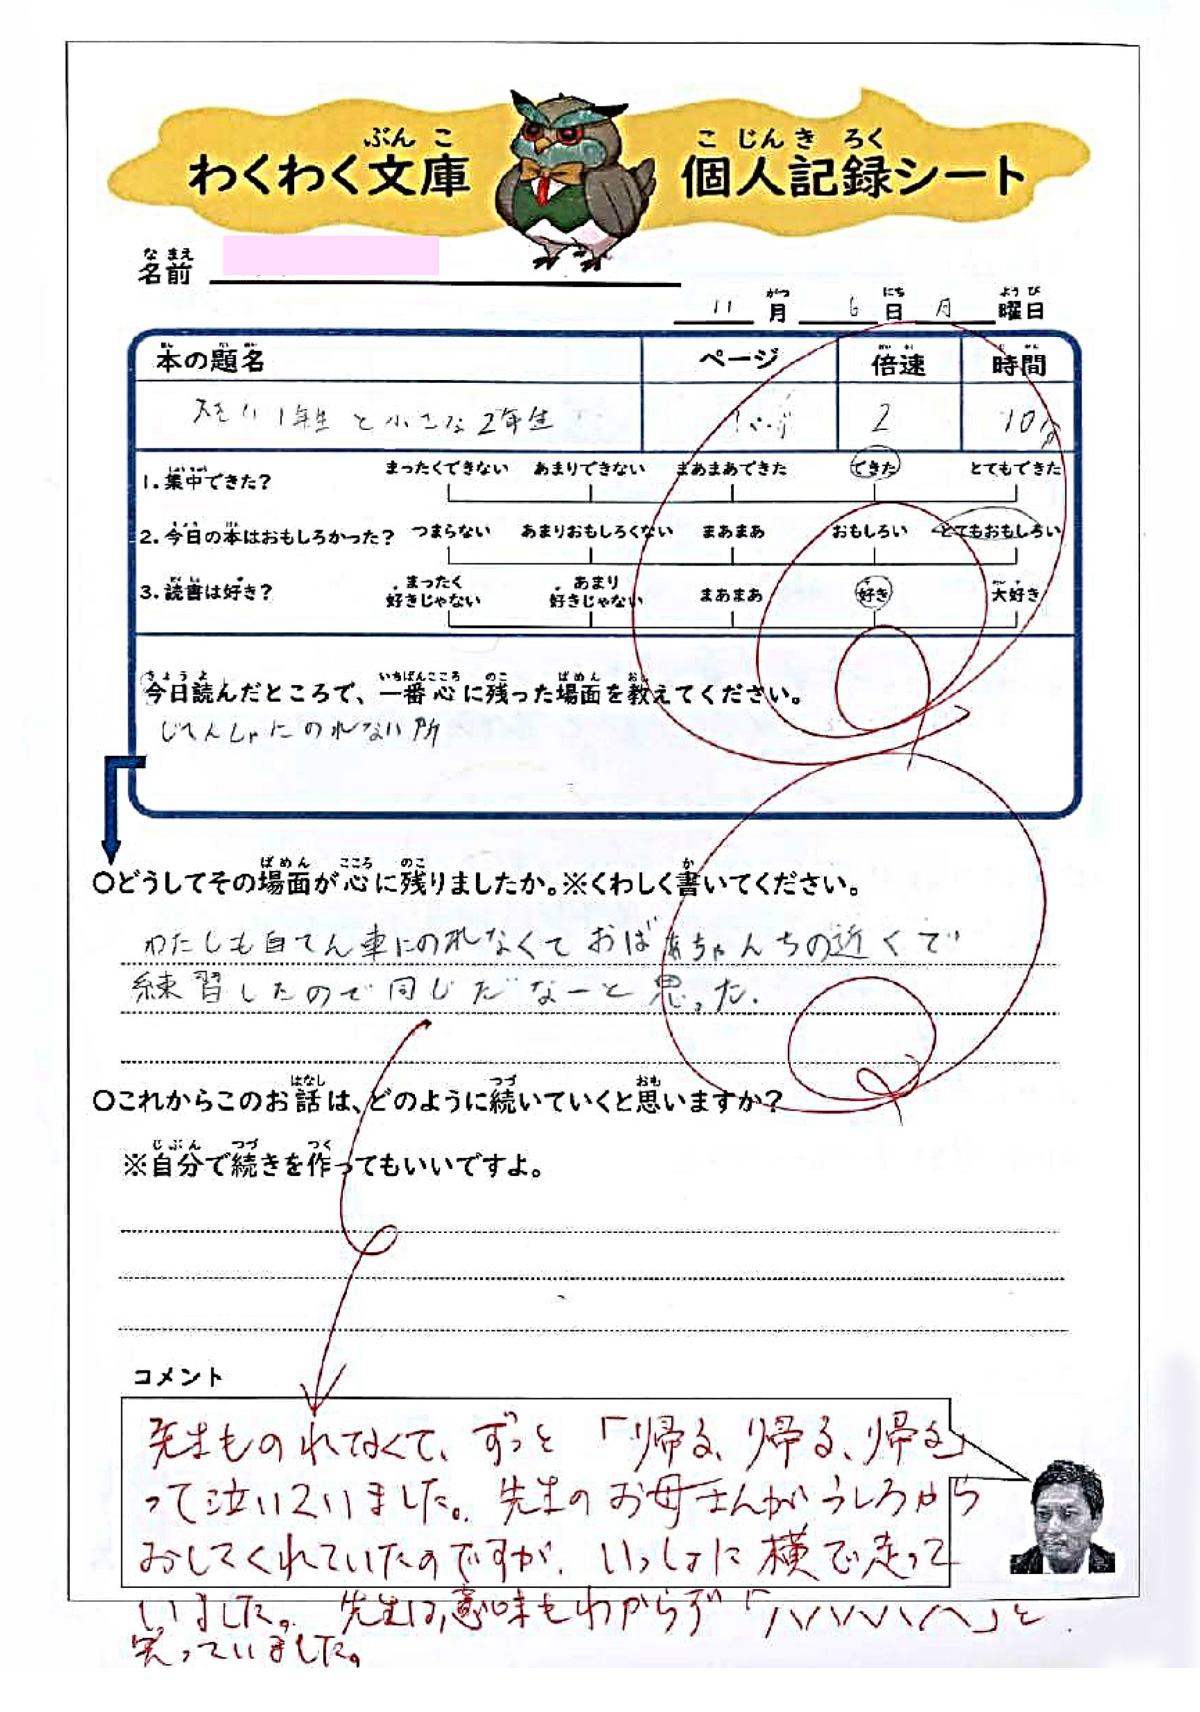 わくわく文庫 個人記録シート
ぶんこ こじんきろく
なまえ
名前
11月6日月曜日
がつ にち ようび
本の題名 ページ 倍速 時間
大きい1年生と小さな2年生 2 10分
1.集中できた? まったくできない あまりできない まあまあできた できた とてもできた
2.今日の本はおもしろかった? つまらない あまりおもしろくない まあまあ おもしろい とてもおもしろい
3.読書は好き? まったく好きじゃない あまり好きじゃない まあまあ 好き 大好き
きょうよ いちばんこころ のこ ばめん おし
今日読んだところで、一番心に残った場面を教えてください。
じてんしゃにのれない所
ばめん こころ のこ か
○どうしてその場面が心に残りましたか。※くわしく書いてください。
わたしも自てん車にのれなくておばあちゃんちの近くで
練習したので同じだなーと思った.
はなし つづ おも
○これからこのお話は、どのように続いていくと思いますか?
じぶん つづ つく
※自分で続きを作ってもいいですよ。
コメント
先生ものれてなくて、ずっと「帰る、帰る、帰る」
って泣いていました。先生のお母さんがうしろから
おしてくれていたのですが、いっしょに横で走って
いました。先生は、意味もわからず「ハハハハハ」と
笑っていました。